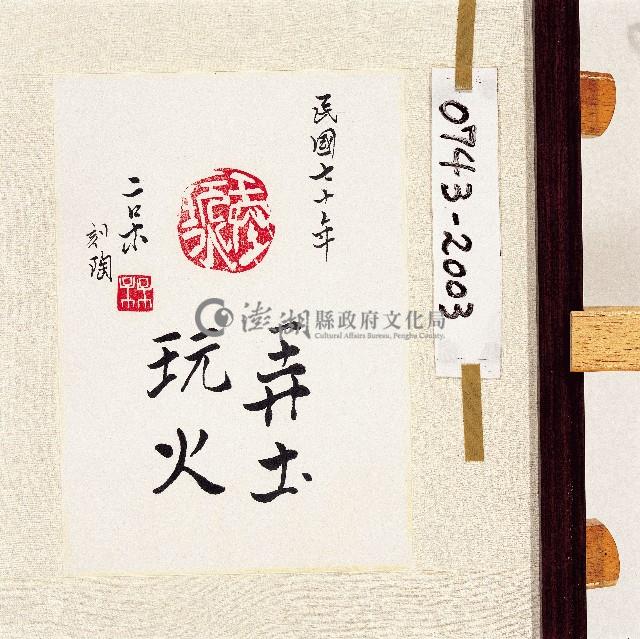 民國七十年
二呆
刻陶
弄土
玩火
0743-2003
澎湖縣政府文化局
Cultural Affairs Bureau, Penghu County.